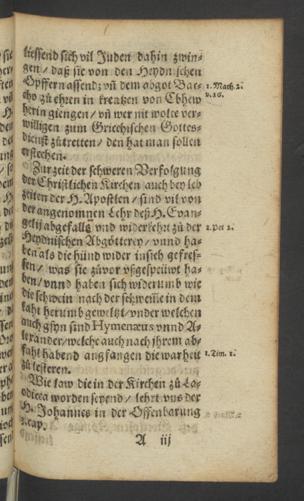 liessend sich vil Juden dahin zwin-
gen / daß sie von den Heydnischen
Opffern assend vñ dem abgot Bac-
cho zů ehren in krentzen von Ebhew
herin giengen / vñ wer nit wolte ver-
willigen zum Griechischen Gottes-
dienst zů tretten / den hat man sollen
erstechen.
1. Mach. 2.
v. 16.
Zur zeit der schweren Verfolgung
der Christlichen Kirchen auch bey leb
zeiten der H. Apostlen / sind vil von
der angenomnen Lehr deß H. Evan-
gelij abgefallē vnd widerkehrt zů der
Heydnischen Abgötterey / vnnd ha-
ben als die hünd wider in sich gefres-
sen / was sie zůvor vßgespeüwt ha-
ben / vnnd haben sich widerumb wie
die schwein nach der schwemme in dem
kaht herumb geweltzt / vnder welchen
auch gsyn sind Hymenæus vnnd A-
lexander / welche auch nach jhrem ab-
fahl habend angfangen die warheit
zů lesteren.
2. Pet. 2.
1. Tim. 1.
Wie law die in der Kirchen zů La-
odicea worden seyend / lehrt vns der
H. Johannes in der Offenbarung
cap.
A iij